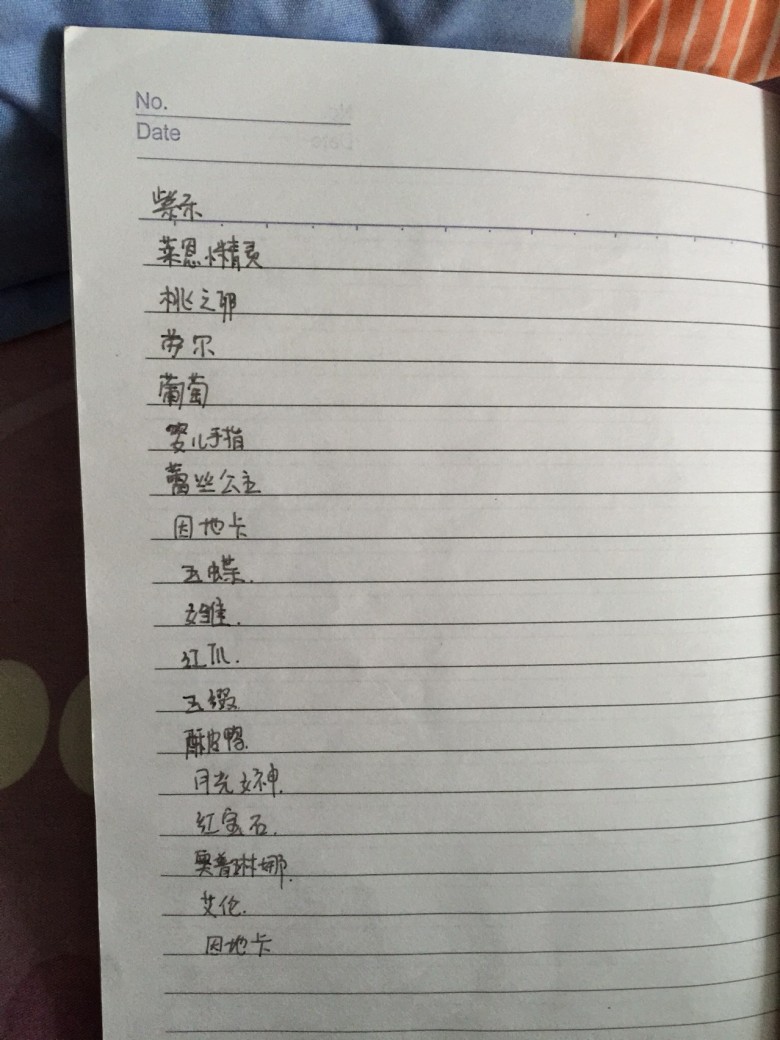 No.
Date
紫乐
莱恩小精灵
桃之卵
劳尔
葡萄
婴儿手指
蕾丝公主
因地卡
玉蝶.
女雏.
红爪.
玉缀.
酥皮鸭.
月光女神.
红宝石.
奥普琳娜.
艾伦.
因地卡